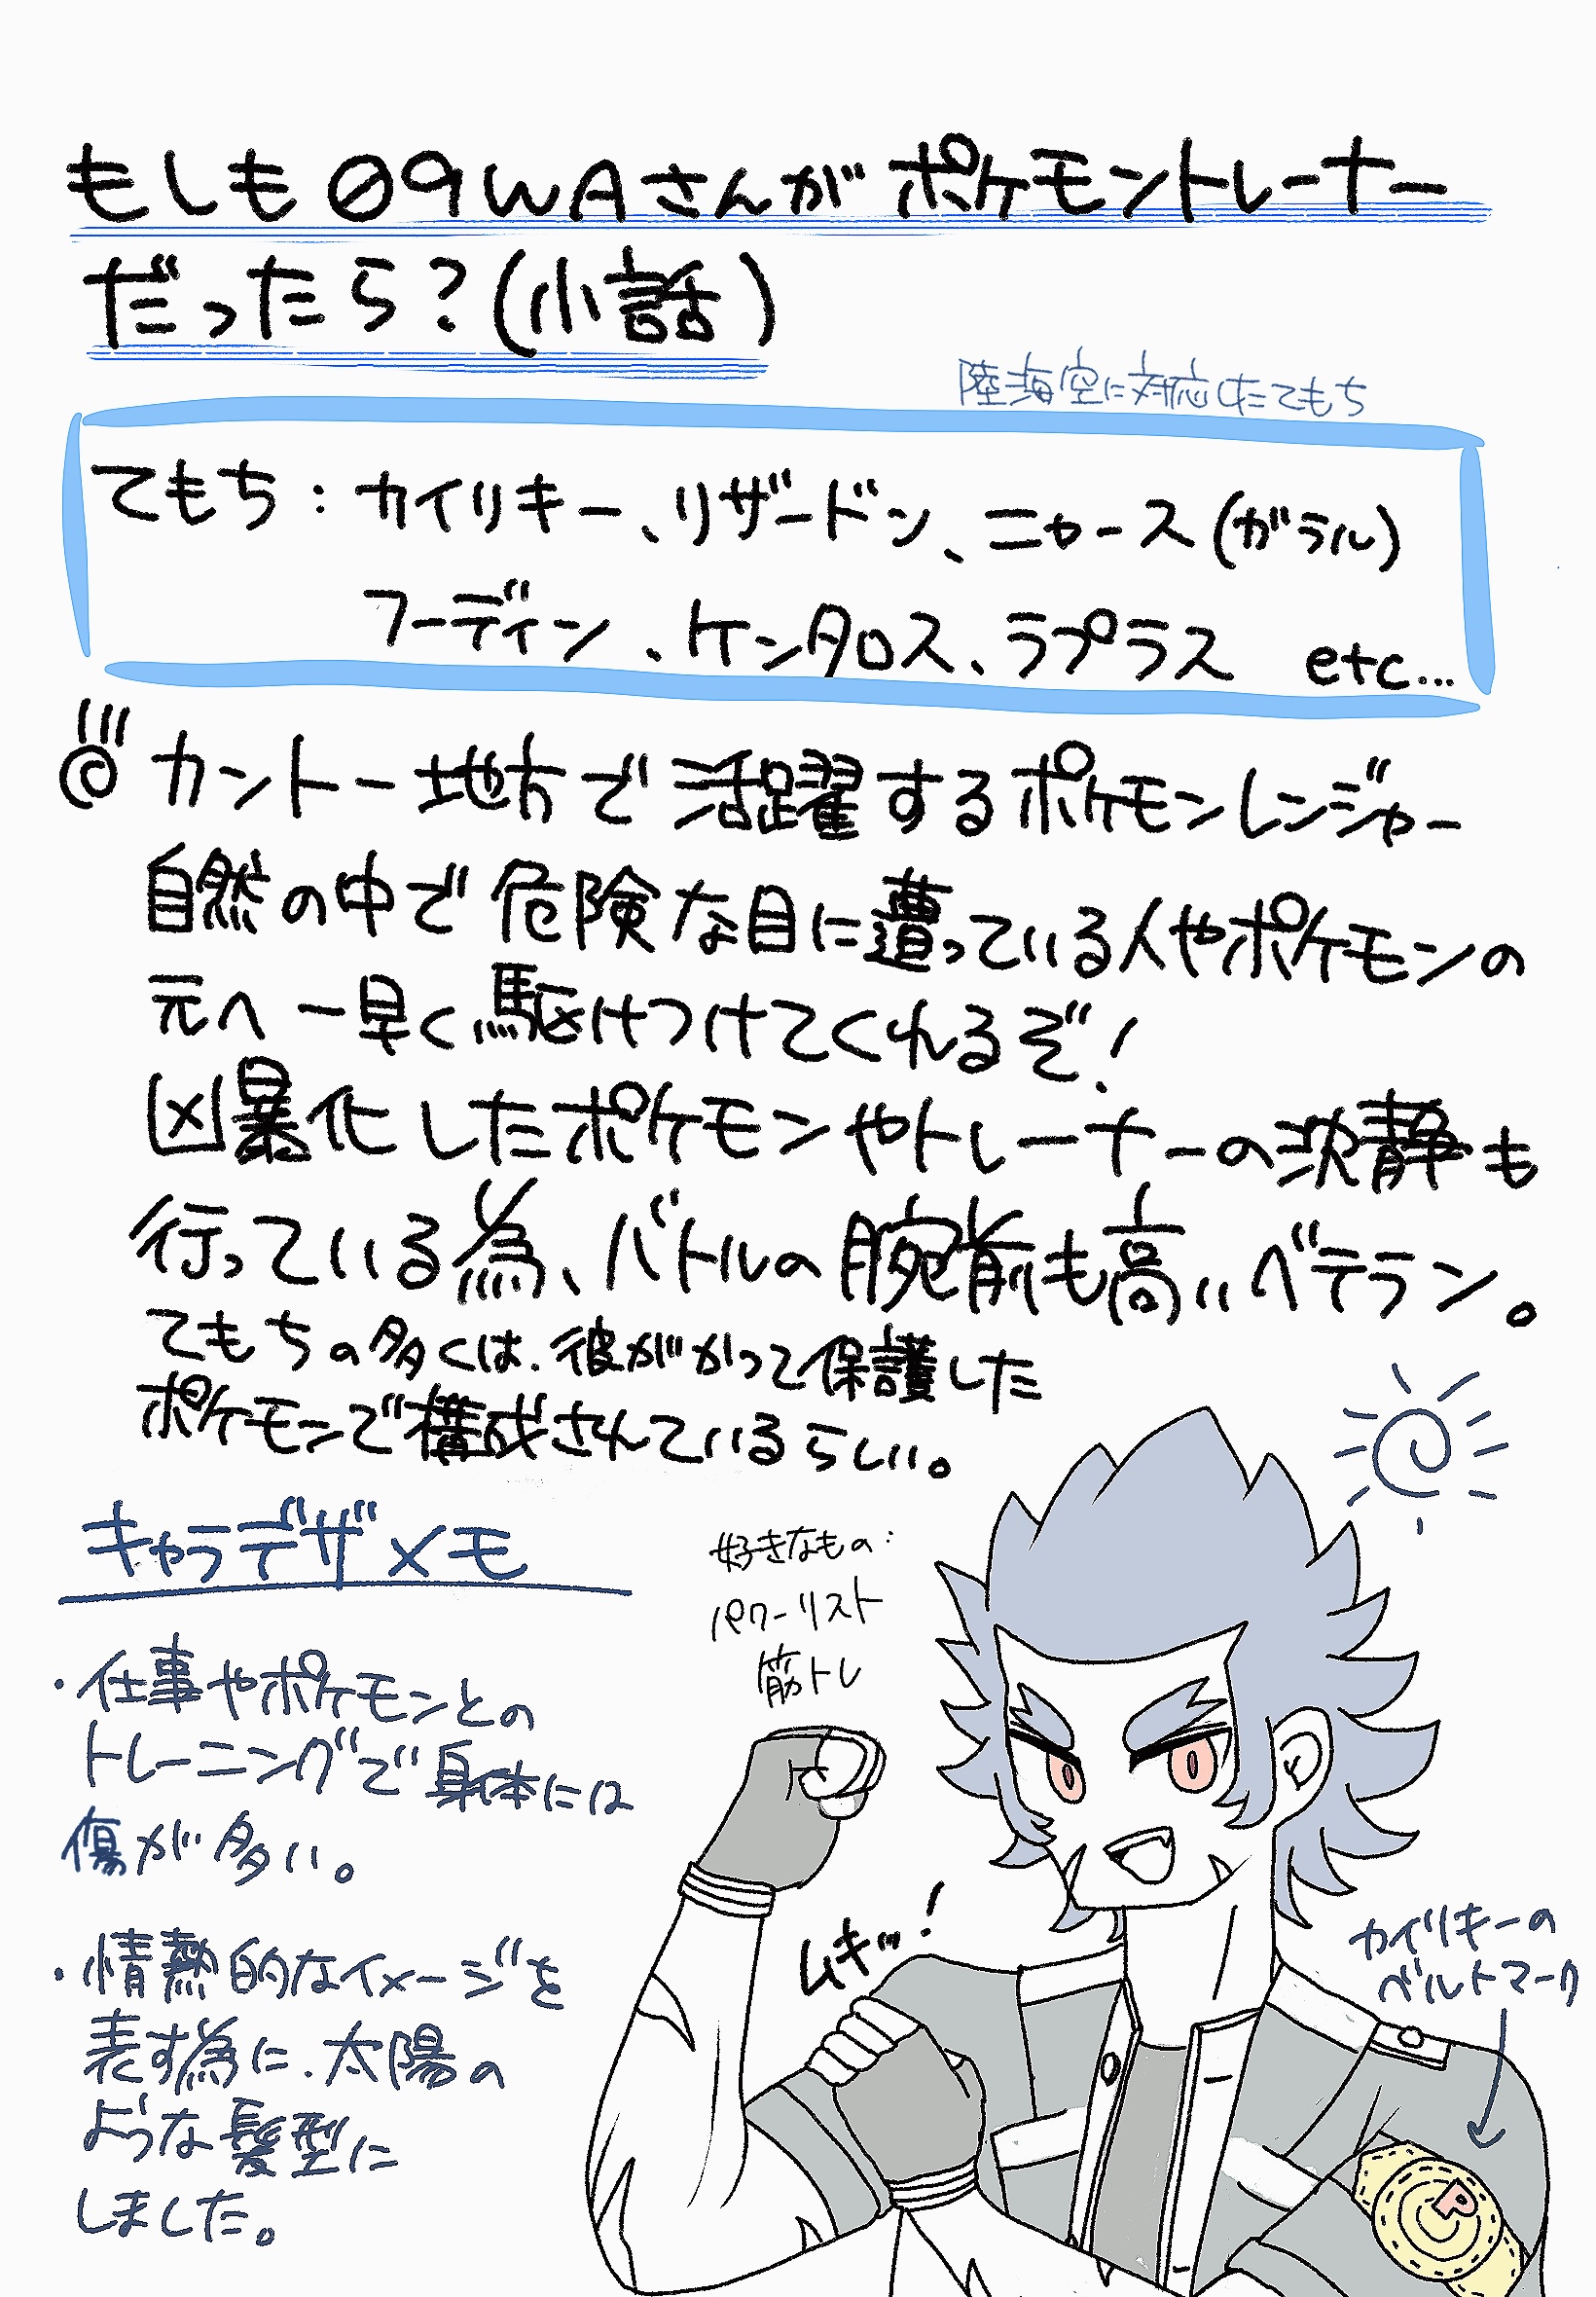 もしも09WAさんがポケモントレーナー
だったら?(小話)
陸海空に対応したてもち
てもち:カイリキー、リザードン、ニャース(ガラル)
フーディン、ケンタロス、ラプラス etc...
カントー地方で活躍するポケモンレンジャー
自然の中で危険な目に遭っている人やポケモンの
元へ一早く駆けつけてくれるぞ!
凶暴化したポケモンやトレーナーの沈静も
行っている為、バトルの腕前も高いベテラン。
てもちの多くは、彼がかつて保護した
ポケモンで構成されているらしい。
キャラデザメモ
・仕事やポケモンとの
トレーニングで身体には
傷が多い。
・情熱的なイメージを
表す為に、太陽の
ような髪型に
しました。
好きなもの:
パワーリスト
筋トレ
ムキッ!
カイリキーの
ベルトマーク
P